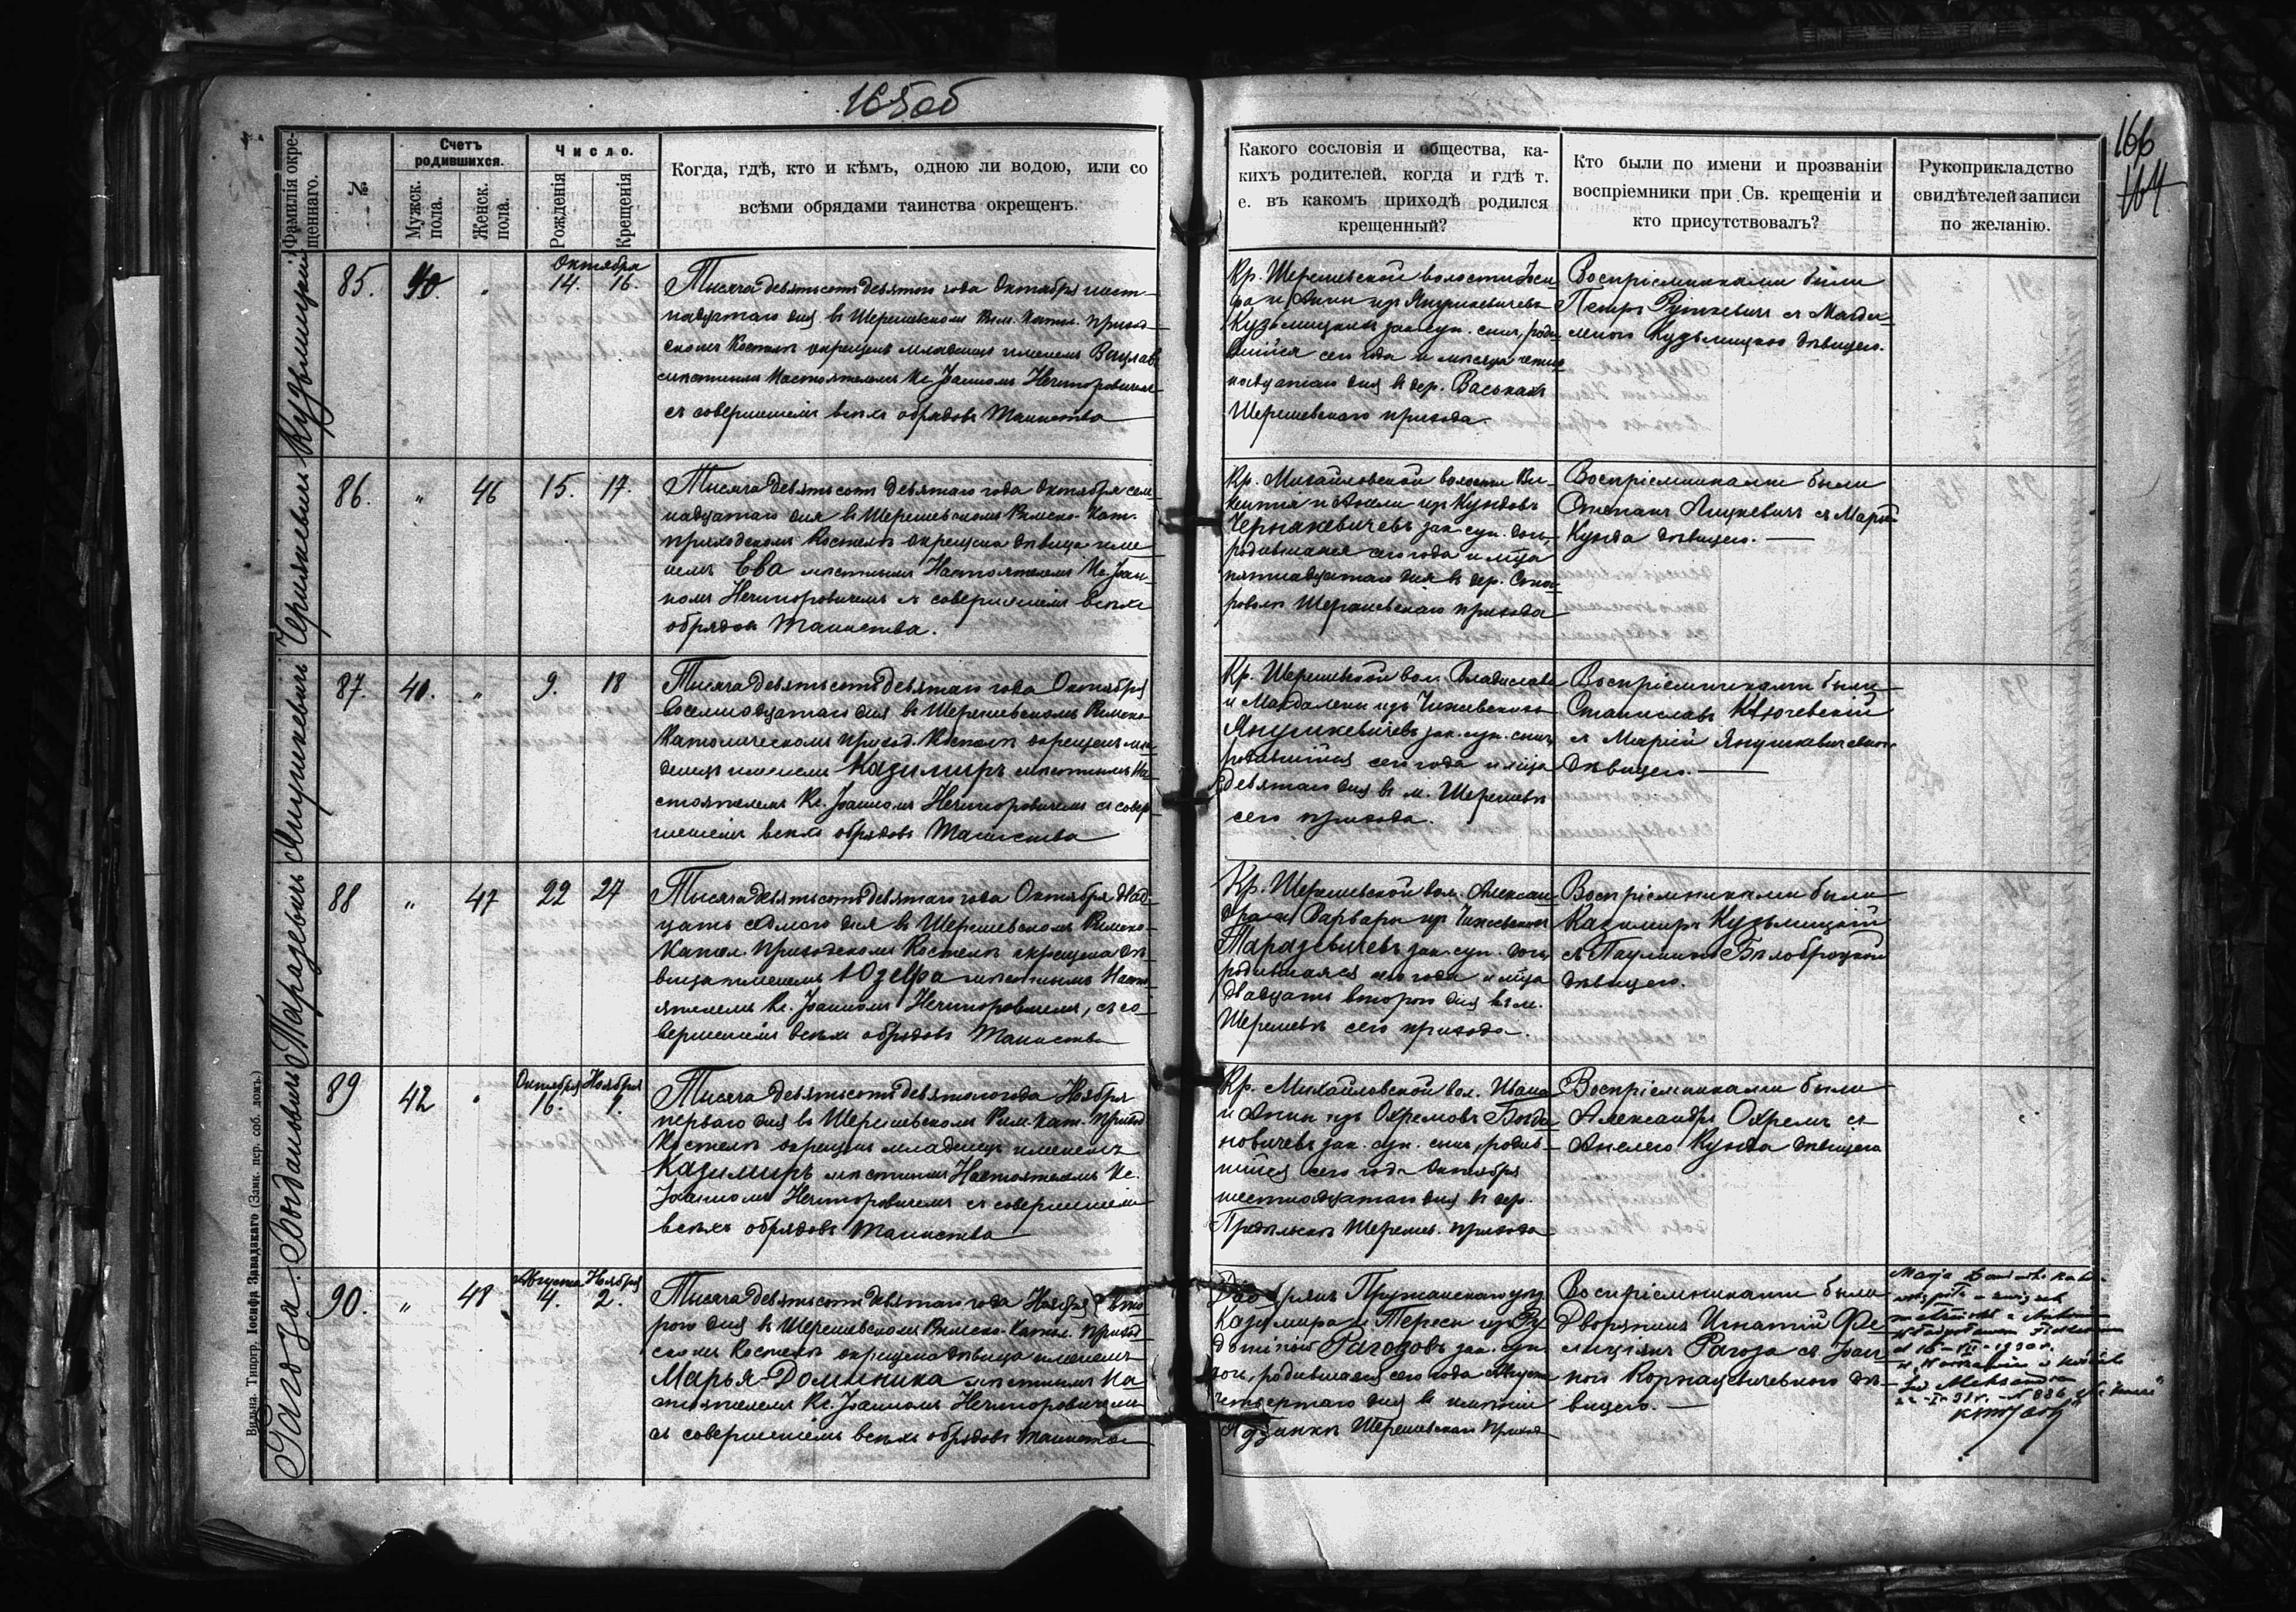 165об
166
164
Фамилія окрещеннаго.
№
Счетъ родившихся.
Мужск. пола.
Женск. пола.
Число.
Рожденія
Крещенія
Когда, гдѣ, кто и кѣмъ, одною ли водою, или со
всѣми обрядами таинства окрещенъ.
Какого сословія и общества, ка-
кихъ родителей, когда и гдѣ т.
е. въ какомъ приходѣ родился
крещенный?
Кто были по имени и прозваніи
воспріемники при Св. крещеніи и
кто присутствовалъ?
Рукоприкладство
свидѣтелей записи
по желанію.
Кузьмицкій
85.
40.
"
Октября
14.
16.
Тысяча девятьсотъ девятаго года Октября шест-
надцатаго дня въ Шерешевскомъ Рим. Катол. приход-
скомъ Костелѣ окрещенъ младенецъ именемъ Вацлавъ
мѣстнымъ Настоятелемъ Кс. Іоанномъ Нечипоровичемъ
съ совершеніемъ всѣхъ обрядовъ Таинства
Кр. Шерешевской волости Іоси-
фа и Анны изъ Янушкевичевъ
Кузьмицкихъ зак. суп. сынъ, роди-
вшійся сего года и мѣсяца четыр-
надцатаго дня въ дер. Васькахъ
Шерешевскаго прихода.
Воспріемниками были
Петръ Руткевичъ съ Магда-
леною Кузьмицкою дѣвицею.
Чернякевичъ
86.
"
46
15.
17.
Тысяча девятьсотъ девятаго года Октября сем-
надцатаго дня въ Шерешевскомъ Римско-Кат.
приходскомъ Костелѣ окрещена дѣвица име-
немъ Ева мѣстнымъ Настоятелемъ Кс. Іоан-
номъ Нечипоровичемъ съ совершеніемъ всѣхъ
обрядовъ Таинства.
Кр. Михайловской волости Ви-
кентія и Анели изъ Кундовъ
Чернякевичевъ зак. суп. дочь,
родившаяся сего года и м-ца
пятнадцатаго дня въ дер.
Шерешевскаго прихода
Воспріемниками были
Степанъ Ляцкевичъ съ Маріей
Кунда дѣвицею.
Янушкевичъ
87.
41.
"
9.
18
Тысяча девятьсотъ девятаго года Октября
восемнадцатаго дня въ Шерешевскомъ Римско-
Католическомъ приход. Костелѣ окрещенъ мла-
денецъ именемъ Казимиръ мѣстнымъ На-
стоятелемъ Кс. Іоанномъ Нечипоровичемъ съ совер-
шеніемъ всѣхъ обрядовъ Таинства
Кр. Шерешевской вол. Владислава
и Магдалены изъ Чижевскихъ
Янушкевичевъ зак. суп. сынъ,
родившійся сего года и м-ца
девятаго дня въ м. Шерешевѣ
сего прихода.
Воспріемниками были
Станиславъ Ключевскій
съ Маріей Янушкевичевною
дѣвицею.
Таразевичъ
88
"
47
22
27
Тысяча девятьсотъ девятаго года Октября двад-
цать седьмого дня въ Шерешевскомъ Римско-
Катол. приходскомъ Костелѣ окрещена дѣ-
вица именемъ Юзефа мѣстнымъ Насто-
ятелемъ Кс. Іоанномъ Нечипоровичемъ, съ со-
вершеніемъ всѣхъ обрядовъ Таинства
Кр. Шерешевской вол. Алексан-
дра и Варвары изъ Чижевскихъ
Таразевичевъ зак. суп. дочь,
родившаяся сего года и м-ца
двадцать второго дня въ м.
Шерешевѣ сего прихода.
Воспріемниками были
Казимиръ Кузьмицкій
съ Паулиною Бѣлобродскою
дѣвицею.
Богдановичъ
89
42
"
Октября
16.
Ноября
1.
Тысяча девятьсотъ девятаго года Ноября
перваго дня въ Шерешевскомъ Рим. Кат. Приход.
Костелѣ окрещенъ младенецъ именемъ
Казимиръ мѣстнымъ Настоятелемъ Кс.
Іоанномъ Нечипоровичемъ съ совершеніемъ
всѣхъ обрядовъ Таинства
Кр. Михайловской вол. Ивана
и Анны изъ Охремовъ Богда-
новичевъ зак. суп. сынъ, родив-
шійся сего года Октября
шестнадцатаго дня въ дер.
Шерешев. прихода
Воспріемниками были
Александръ Охремъ съ
Анелею Кунда дѣвицею
Рагоза.
90.
"
48
Августа
4.
Ноября
2.
Тысяча девятьсотъ девятаго года Ноября вто-
рого дня въ Шерешевскомъ Римско-Катол. приход-
скомъ Костелѣ окрещена дѣвица именемъ
Марья-Доминика мѣстнымъ На-
стоятелемъ Кс. Іоанномъ Нечипоровичемъ
съ совершеніемъ всѣхъ обрядовъ таинства
Дворянъ Пружанскаго уѣз.
Казимира и Тересы изъ
Рагозовъ зак. суп.
дочь, родившаяся сего года Августа
четвертаго дня въ имѣніи
Шерешевскаго прихода
Воспріемниками были
Дворянинъ Игнатій Фе-
лиціанъ Рагоза съ Іоан-
ною Корнацевичевною дѣ-
вицею.
Вильна. Типогр. Іосифа Завадзкаго (Замк. пер. соб. домъ.)